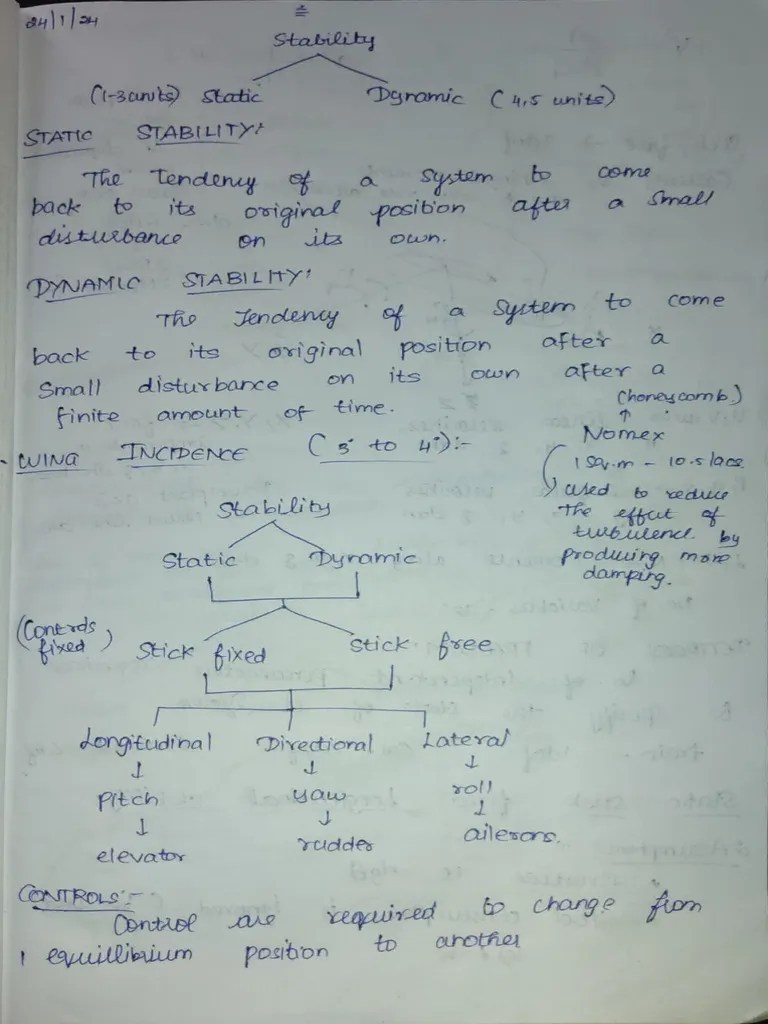 24/1/24
Stability
(1-3 units) Static Dynamic (4,5 units)
STATIC STABILITY:
The Tendency of a system to come
back to its original position after a small
disturbance on its own.
DYNAMIC STABILITY:
The Tendency of a system to come
back to its original position after a
small disturbance on its own after a
finite amount of time.
(honeycomb)
Nomex
1 sq.m - 10.5 lacs.
used to reduce
the effect of
turbulence by
producing more
damping.
WING INCIDENCE (3° to 4°):-
Stability
Static Dynamic
(Controls fixed) Stick fixed Stick free
Longitudinal Directional Lateral
↓ ↓ ↓
Pitch yaw roll
↓ ↓ ↓
elevator rudder ailerons.
CONTROLS:-
Control are required to change from
1 equillibrium position to another